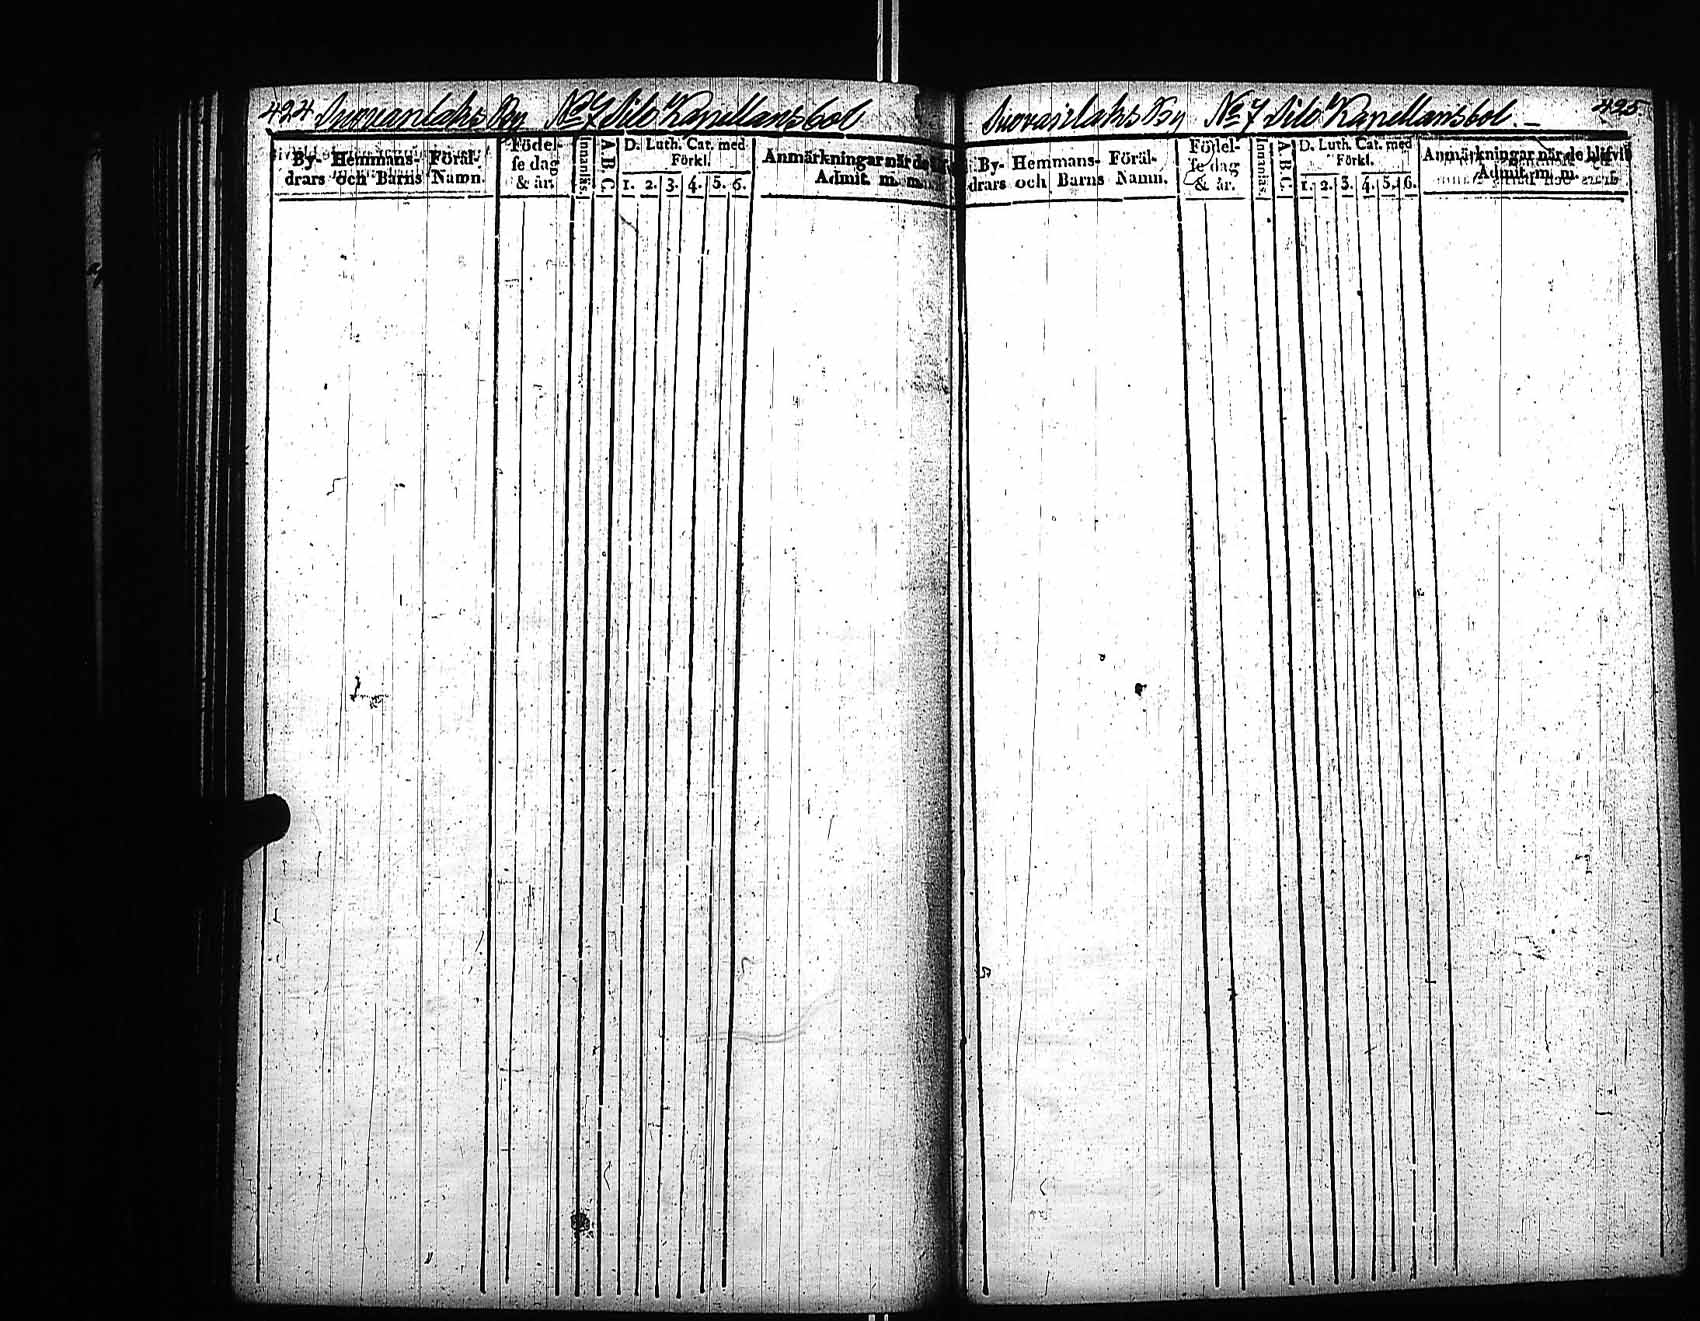 424 Suovanlaks By No 7 Silo Kapellansbol
By- Hemmans- Föräl-
drars och Barns Namn.
Födel-
se dag
& år.
Innanläs.
A.B.C.
D. Luth. Cat. med
Förkl.
1. 2. 3. 4. 5. 6.
Anmärkningar när de
Admit. m. m.
By No 7 Silo Kapellansbol. 425
By- Hemmans- Föräl-
drars och Barns Namn.
Födel-
se dag
& år.
Innanläs.
A.B.C.
D. Luth. Cat. med
Förkl.
1. 2. 3. 4. 5. 6.
Anmärkningar när de blifvit
Admit. m. m.